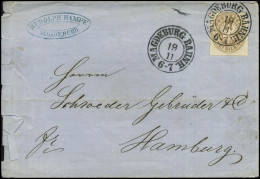 RUDOLPH HAMPE
MAGDEBURG
MAGDEBURG BAHNH.
19
11
6-7
MAGDEBURG BAHNH.
19
11
6-7
Herren
Schroeder Gebrüder & Co
Hamburg